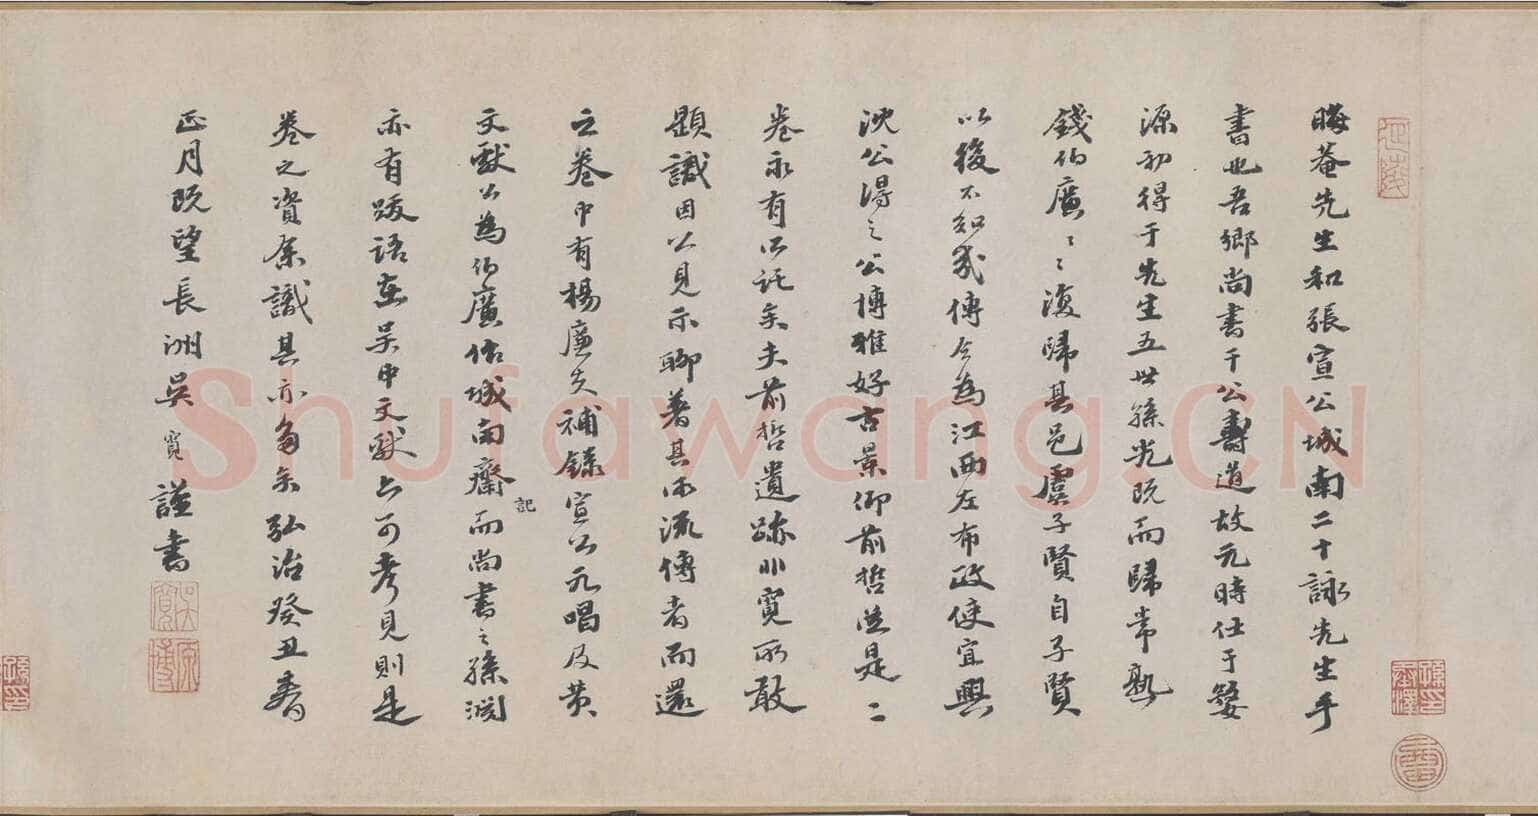 晦菴先生和張宣公城南二十詠先生手
書也吾鄉尚書干公壽道故元時仕于婺
源初得于先生五世孫光既而歸常熟
錢伯廣〻〻復歸其邑虞子賢自子賢
以後不知幾傳今為江西左布政使宜興
沈公得之公博雅好古景仰前哲從是二
卷永有所託矣夫前哲遺跡非寬所敢
題識因以見示聊著其所流傳者而還
之卷中有楊廉夫補錄宣公元唱及黃
文獻公為伯廣作城南齋記而尚書之孫淵
亦有跋語在吳中文獻亦可考見則是
卷之資余識其亦多矣弘治癸丑春
正月既望長洲吳寬謹書
吳寬
原博
Shufawang.CN